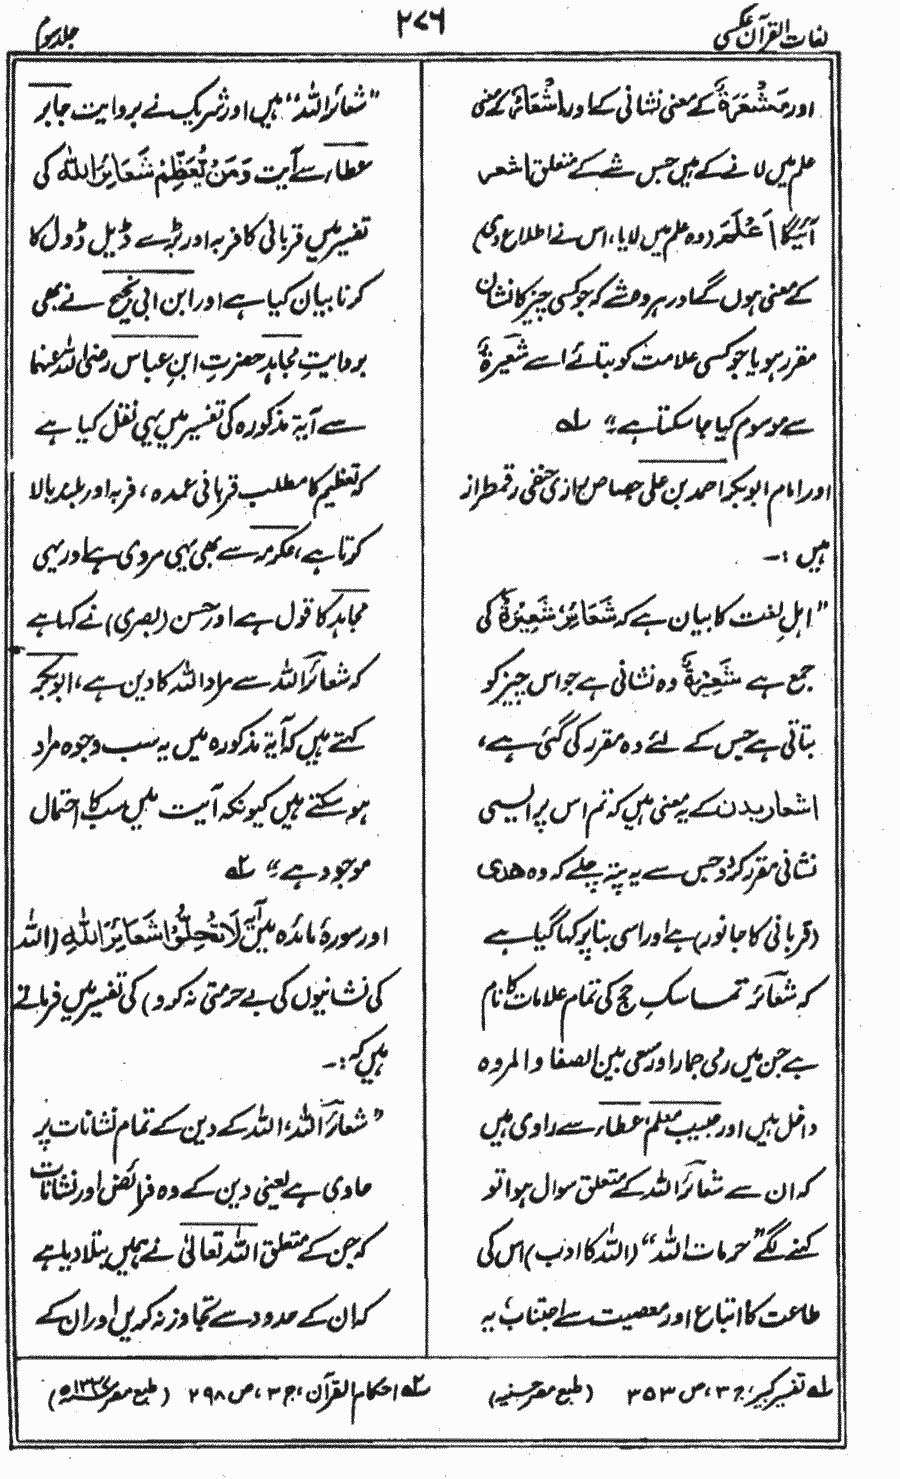 لغات القرآن عکسی
۲۷۶
جلد سوم
اور مَشْعَرَةٌ کے معنی نشانی کے اور اشعائر کے معنی
علم میں لانے کے ہیں جس شے کے متعلق اشعر
آئیگا اَعْلَمَہٗ (وہ علم میں لایا، اس نے اطلاع دی)
کے معنی ہوں گے اور ہر وہ شے کہ جو کسی چیز کا نشان
مقرر ہو یا جو کسی علامت کو بتائے اسے شعیرۃٌ
سے موسوم کیا جا سکتا ہے“ ۱؎
اور امام ابوبکر احمد بن علی جصاص رازی حنفی رقمطراز
ہیں :۔
”اہل لغت کا بیان ہے کہ شَعَائِرُ، شَعِیْرَۃٌ کی
جمع ہے شَعِیْرَۃٌ وہ نشانی ہے جو اس چیز کو
بتاتی ہے جس کے لئے وہ مقرر کی گئی ہے،
اشعار بدن کے یہ معنی ہیں کہ تم اس پر ایسی
نشانی مقرر کردو جس سے یہ پتہ چلے کہ وہ ھدی
(قربانی کا جانور) ہے اور اسی بنا پر کہا گیا ہے
کہ شعائر تمام مناسکِ حج کی تمام علامات کا نام
ہے جن میں رمی جمار اور سعی بین الصفا والمروہ
داخل ہیں اور حبیب معلم، عطاء سے راوی ہیں
کہ ان سے شعائر اللہ کے متعلق سوال ہوا تو
کہنے لگے ”حرمات اللہ“ (اللہ کا ادب) اس کی
طاعت کا اتباع اور معصیت سے اجتناب یہ
”شعائر اللہ“ ہیں اور شریک نے بروایت جابر
عطاء سے آیت وَمَنْ تُعَظِّمْ شَعَائِرَ اللّٰہِ کی
تفسیر میں قربانی کا فربہ اور بڑے ڈیل ڈول کا
کرنا بیان کیا ہے اور ابن ابی نجیح نے بھی
بروایتِ مجاہد حضرتِ ابنِ عباس رضی اللہ عنہما
سے آیۃ مذکورہ کی تفسیر میں یہی نقل کیا ہے
کہ تعظیم کا مطلب قربانی عمدہ، فربہ اور بلند بالا
کرنا ہے، عکرمہ سے بھی یہی مروی ہے اور یہی
مجاہد کا قول ہے اور حسن (بصری) نے کہا ہے
کہ شعائر اللہ سے مراد اللہ کا دین ہے، ابوبکر
کہتے ہیں کہ آیۃ مذکورہ میں یہ سب وجوہ مراد
ہو سکتے ہیں کیونکہ آیت میں سب کا احتمال
موجود ہے“ ۲؎
اور سورۂ مائدہ میں آیۃ لَا تُحِلُّوْا شَعَائِرَ اللّٰہِ (اللہ
کی نشانیوں کی بے حرمتی نہ کرو) کی تفسیر میں فرماتے
ہیں کہ :۔
”شعائر اللہ، اللہ کے دین کے تمام نشانات پر
حاوی ہے یعنی دین کے وہ فرائض اور نشانات
کہ جن کے متعلق اللہ تعالیٰ نے ہمیں بتلا دیا ہے
کہ ان کے حدود سے تجاوز نہ کریں اور ان کے
۱؎ تفسیر کبیر، ج ۳، ص ۳۵۳ (طبع مصر حسنیہ)
۲؎ احکام القرآن، ج ۳، ص ۲۹۸ (طبع مصر)